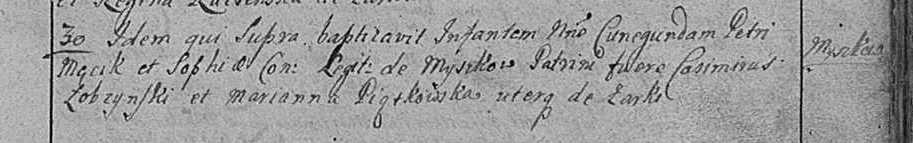 et Regina
30 Idem qui Supra baptizavit Infantem Nnē Cunegundam Petri
Macik et Sophiæ Con: Legit: de Myszkow Patrini fuere Casimirus
Łobzynski et Marianna Piątkowska uterq de Żarki
Myszkow